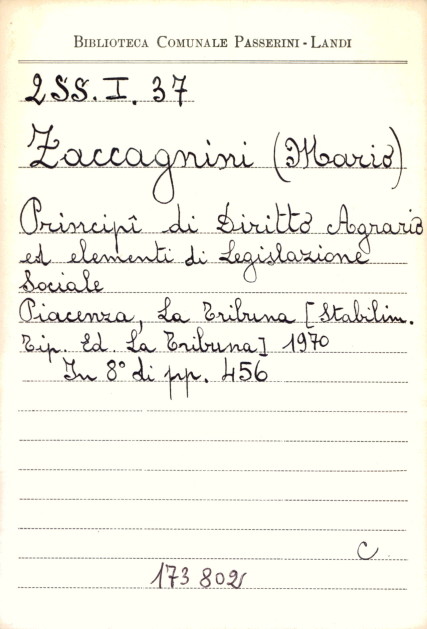 BIBLIOTECA COMUNALE PASSERINI - LANDI
2SS. I. 37
Zaccagnini (Mario)
Principî di Diritto Agrario
ed elementi di Legislazione
Sociale
Piacenza, La Tribuna [Stabilim.
Tip. Ed. La Tribuna] 1970
In 8° di pp. 456
C
173 802